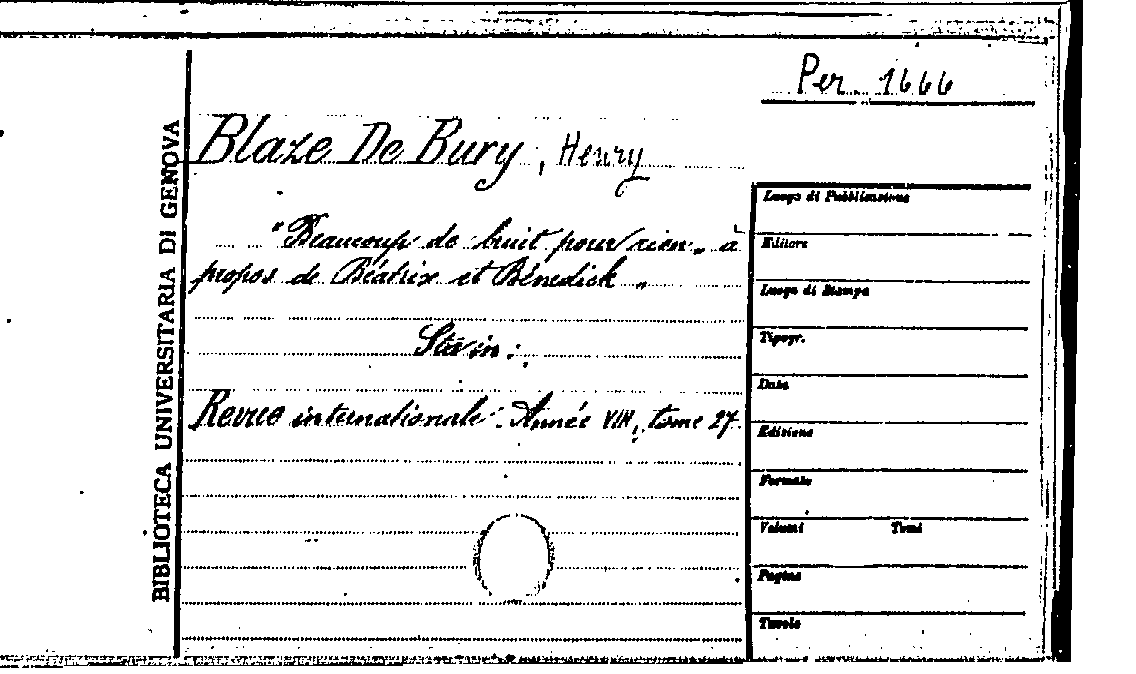 Per. 1666
BIBLIOTECA UNIVERSITARIA DI GENOVA
Blaze De Bury, Henry
"Beaucoup de bruit pour rien„ à
propos de Béatrix et Bénedick „
Sta in:
Revue internationale. Année VIII, tome 27.
Luogo di Pubblicazione
Editore
Luogo di Stampa
Tipogr.
Data
Edizione
Formato
Volumi Tomi
Pagine
Tavole